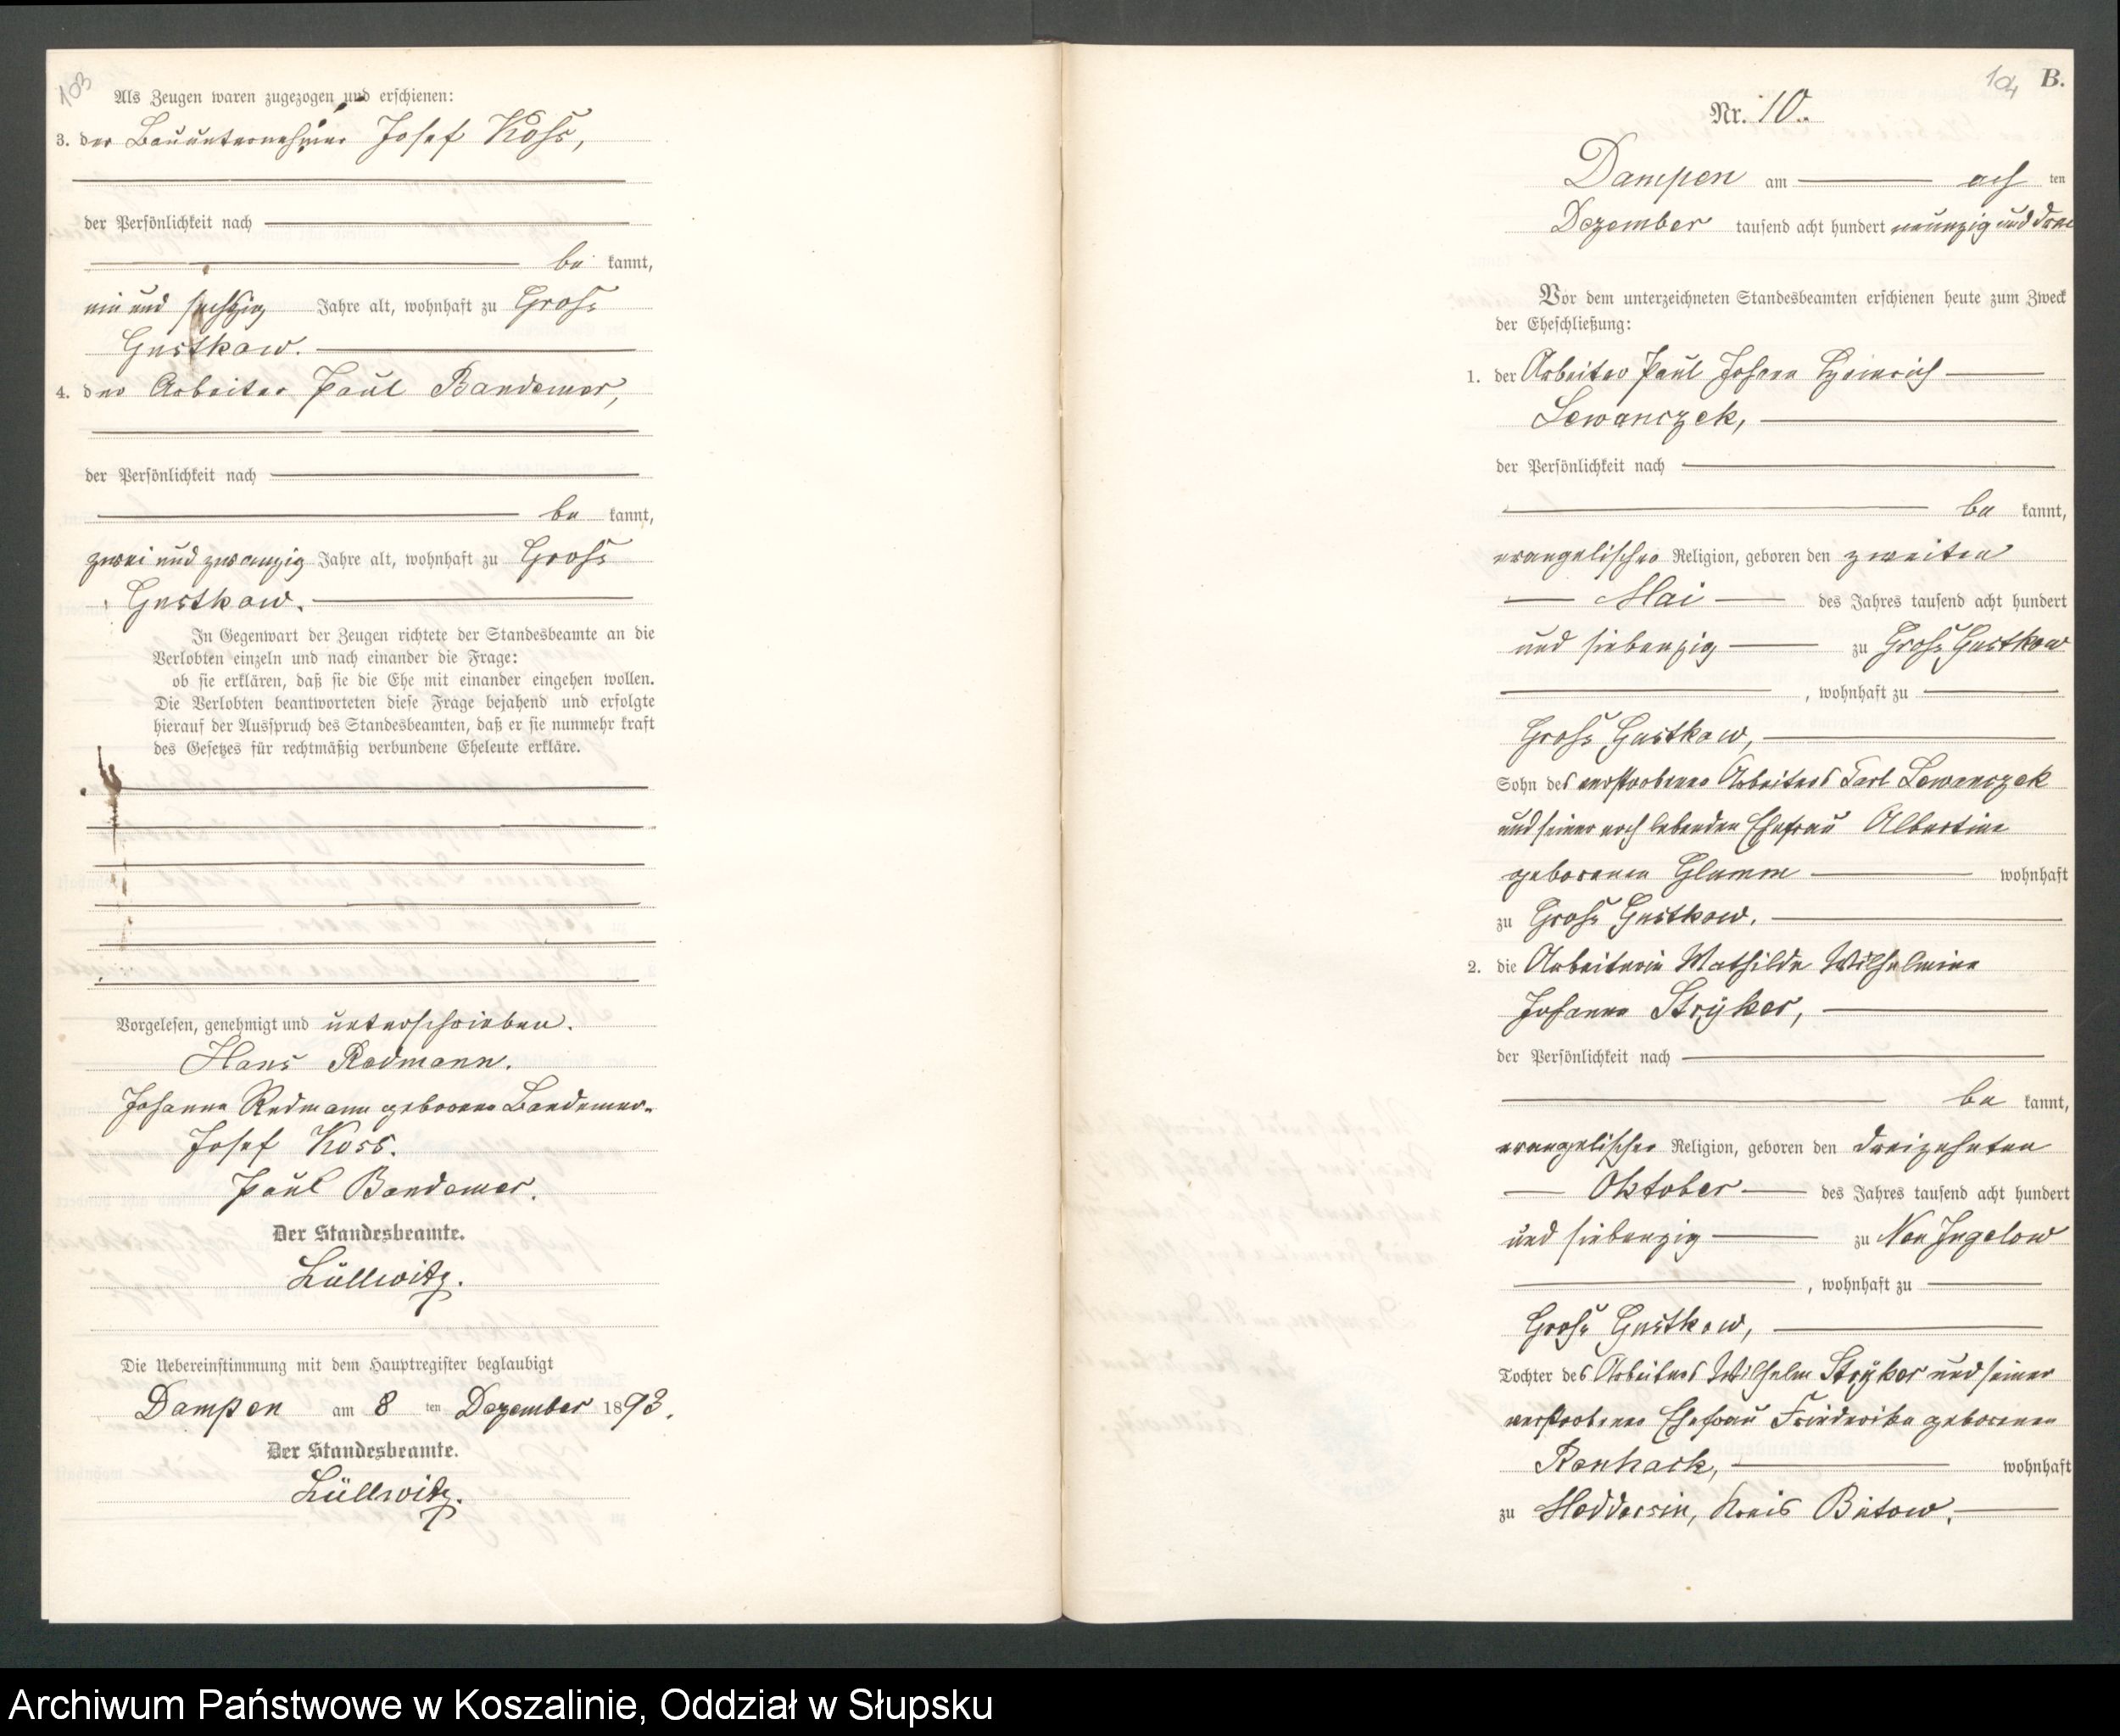 103
Als Zeugen waren zugezogen und erschienen:
3. der Bauunternehmer Josef Koss,
der Persönlichkeit nach
be kannt,
ein und sechzig Jahre alt, wohnhaft zu Gross
Gustkow.
4. der Arbeiter Paul Bandemer,
der Persönlichkeit nach
be kannt,
zwei und zwanzig Jahre alt, wohnhaft zu Gross
Gustkow.
In Gegenwart der Zeugen richtete der Standesbeamte an die
Verlobten einzeln und nach einander die Frage:
ob sie erklären, daß sie die Ehe mit einander eingehen wollen.
Die Verlobten beantworteten diese Frage bejahend und erfolgte
hierauf der Ausspruch des Standesbeamten, daß er sie nunmehr kraft
des Gesetzes für rechtmäßig verbundene Eheleute erkläre.
Vorgelesen, genehmigt und unterschrieben.
Hans Redmann.
Johanna Redmann geborene Bandemer.
Josef Koss.
Paul Bandemer.
Der Standesbeamte.
Lüllwitz.
Die Uebereinstimmung mit dem Hauptregister beglaubigt
Dampen am 8 ten Dezember 1893.
Der Standesbeamte.
Lüllwitz.
104 B.
Nr. 10.
Dampen am ach ten
Dezember tausend acht hundert neunzig und drei
Vor dem unterzeichneten Standesbeamten erschienen heute zum Zweck
der Eheschließung:
1. der Arbeiter Paul Johann Heinrich
Lewanczek,
der Persönlichkeit nach
be kannt,
evangelischer Religion, geboren den zweiten
Mai des Jahres tausend acht hundert
und siebenzig zu Gross Gustkow
, wohnhaft zu
Gross Gustkow,
Sohn des verstorbenen Arbeiters Carl Lewanczek
und seiner noch lebenden Ehefrau Albertine
geborenen Glamm wohnhaft
zu Gross Gustkow.
2. die Arbeiterin Mathilde Wilhelmine
Johanna Stryker,
der Persönlichkeit nach
be kannt,
evangelischer Religion, geboren den dreizehnten
Oktober des Jahres tausend acht hundert
und siebenzig zu Neu Jugelow
, wohnhaft zu
Gross Gustkow,
Tochter des Arbeiters Wilhelm Stryker und seiner
verstorbenen Ehefrau Friederike geborenen
wohnhaft
zu Moddersin, Kreis Bütow.
Archiwum Państwowe w Koszalinie, Oddział w Słupsku